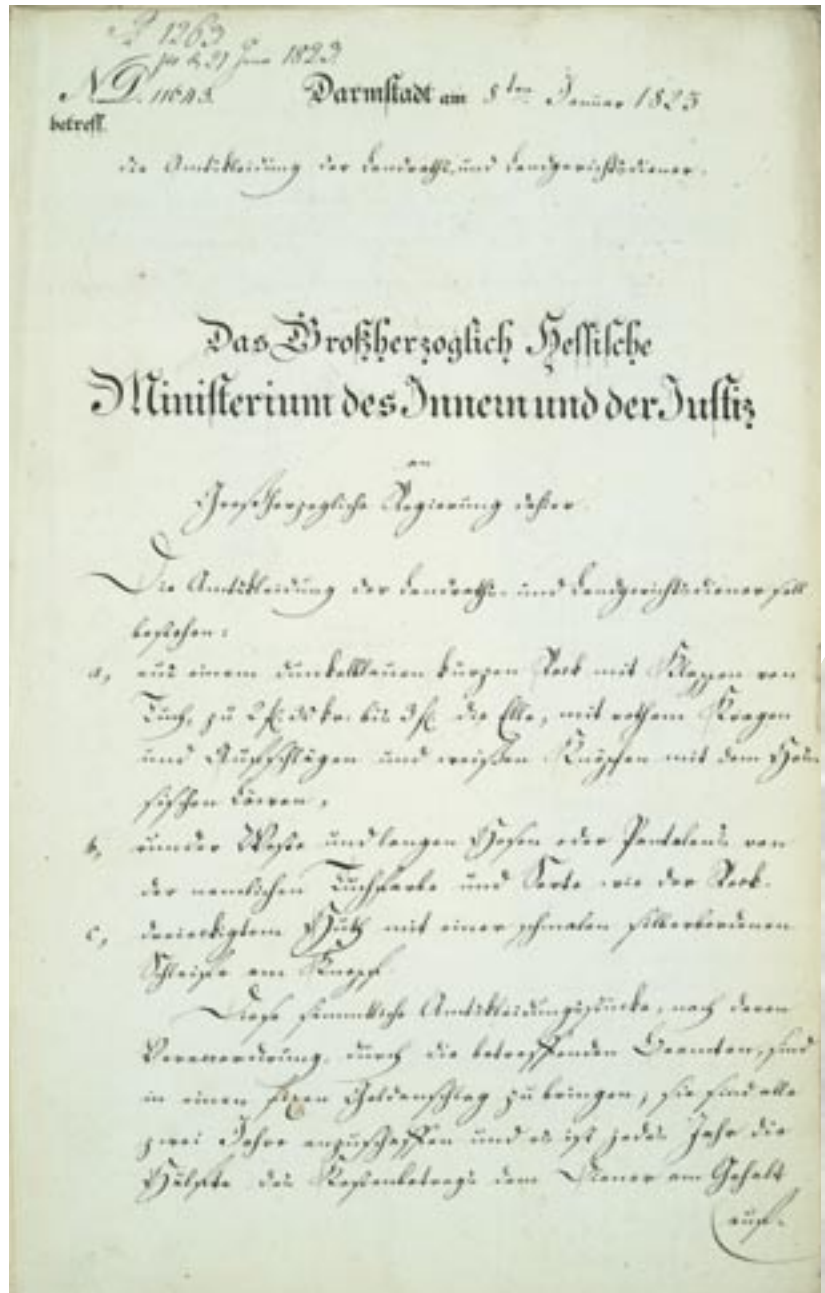 1263
1823
N. D. 11643. Darmstadt am 8ten Januar 1823
betreff.
die Amtskleidung der Landraths- und Landgerichtsdiener.
Das Großherzoglich Hessische
Ministerium des Innern und der Justiz
an
Großherzogliche Regierung dahier.
Die Amtskleidung der Landraths- und Landgerichtsdiener soll
bestehen:
a, aus einem dunkelblauen kurzen Rock mit Klappen von
Tuch, zu 2 fl. 30 kr. bis 3 fl. die Elle, mit rothem Kragen
und Aufschlägen und weißen Knöpfen mit dem Hes-
sischen Löwen,
b, runder Weste und langen Hosen oder Pantalons von
der nemlichen Tuchfarbe und Sorte wie der Rock.
c, dreieckigtem Huth mit einer schmalen silberbordenen
Schleife am Knopf.
Diese sämmtliche Amtskleidungsstücke, nach deren
durch die betreffenden Beamten, sind
in einen fixen Geldanschlag zu bringen, sie sind alle
zwei Jahre anzuschaffen und es ist jedes Jahr die
Hälfte des Kostenbetrags dem Diener am Gehalt
auf-